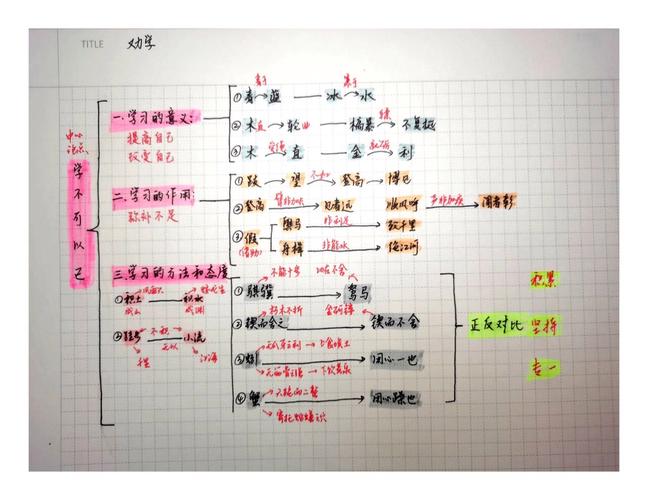 TITLE 劝学
中心论点:
学不可以已
一.学习的意义:
提高自己
改变自己
①青→蓝——冰→水
②木直→轮曲——槁暴→不复挺
③木→直——金→利
二.学习的作用:
弥补不足
①跂→望→登高→博见
②登高→见者远 顺风呼→闻者彰
臂非加长 声非加疾
③假
非利足
致千里
舟楫 非能水 绝江河
三.学习的方法和态度
①积土 积水
成山 成渊
不积 小流
无以
江海
①骐骥→驽马
不能十步
②锲而舍之→锲而不舍
朽木不折 金石可镂
③蚓→用心一也
④蟹→用心躁也
正反对比
积累
坚持
专一